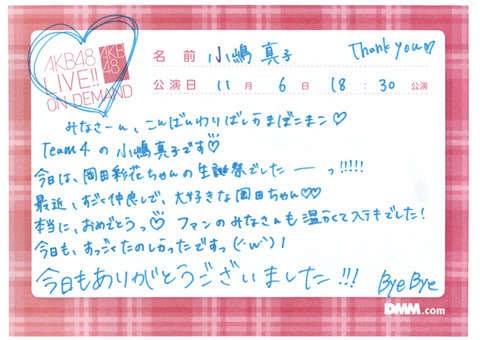 AKB48
LIVE!!
ON DEMAND
AKB
48
名前 小嶋 真子 Thank you♡
公演日 11月 6日 18:30 公演
みなさーん、こんばんわりばしかまぼこまこ♡
Team4の小嶋真子です♡
今日は、岡田彩花ちゃんの生誕祭でしたーっ!!!!!
最近、すごく仲良しで、大好きな岡田ちゃん♡♡
本当に、おめでとうっ♡ ファンのみなさんも温かくてステキでした!
今日も、すっごくたのしかったですっ(・ω・)ノ
今日もありがとうございました!!!
Bye Bye
DMM.com